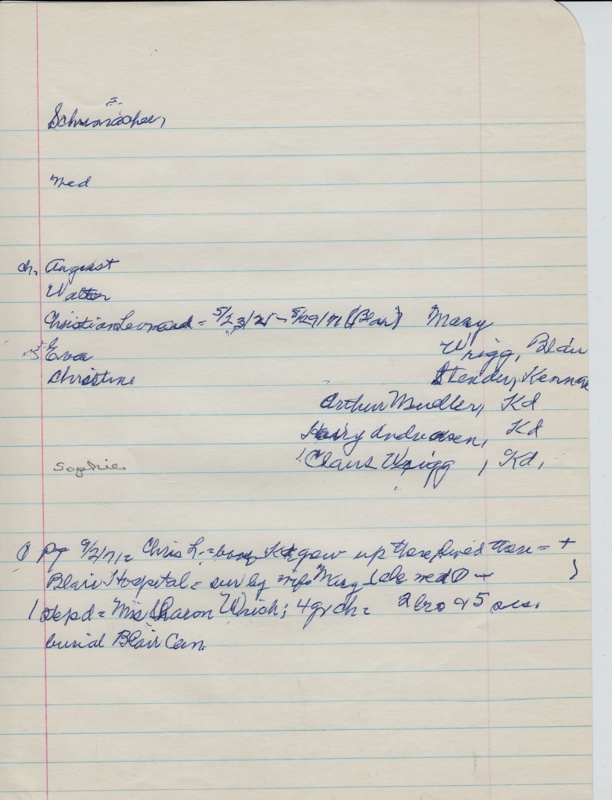 Med
ch. August
Walter
Christian Leonard = 5/23/25 - 8/29/71 (Blair) Mary
Eva Wrigg, Blair
Christine Stender, Kennard
Arthur Mueller, Kd
Harry Andreasen, Kd
Sophie Claus Wrigg, Kd,
9/2/71 = Chris L. = born Kd grew up there, lived there = +
Blair Hospital = sur by wife Mary
1 stepd = Mrs Sharon ; 4 grch = 2 bro & 5 sis.
burial Blair Cem